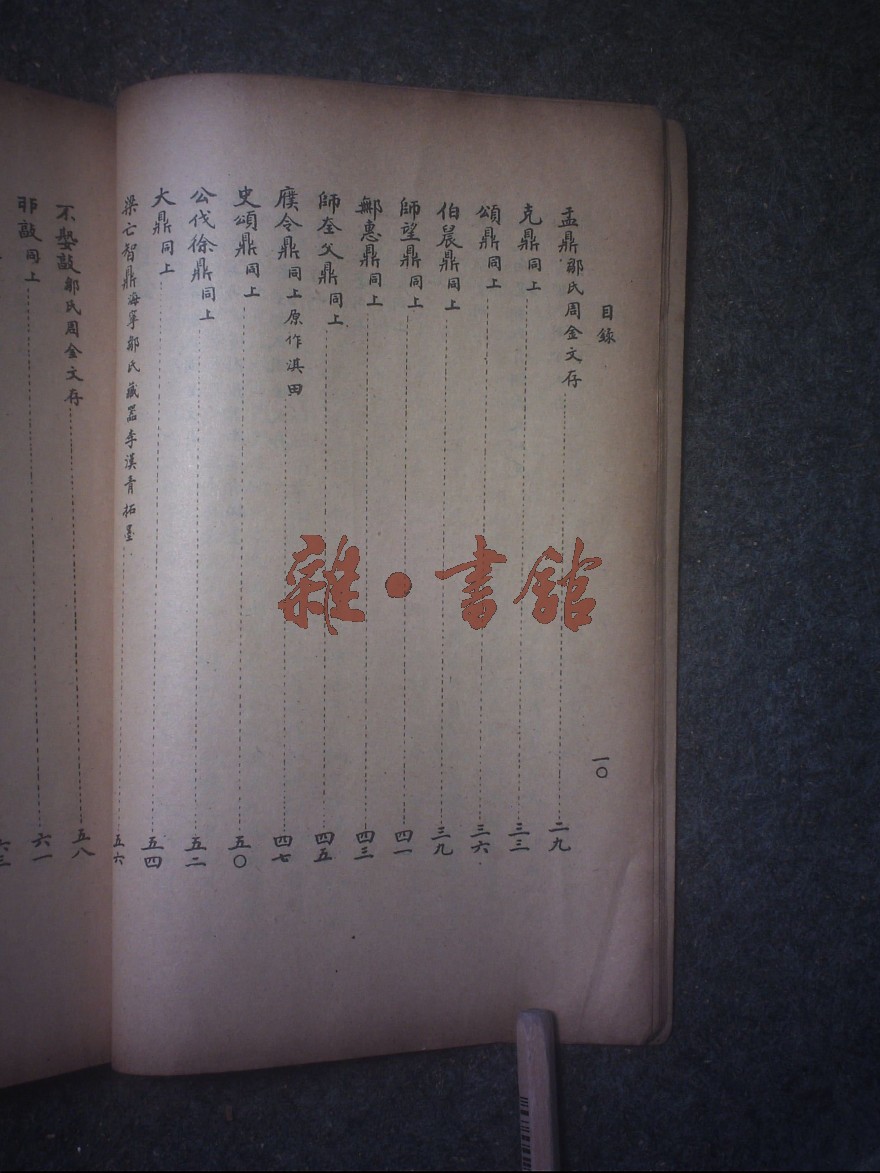 目錄
一〇
盂鼎鄒氏周金文存 二九
克鼎同上 三三
頌鼎同上 三六
伯晨鼎同上 三九
師望鼎同上 四一
鄦惠鼎同上 四三
師奎父鼎同上 四五
令鼎同上原作淇田 四七
史頌鼎同上 五〇
公伐徐鼎同上 五二
大鼎同上 五四
梁亡智鼎海寧鄒氏藏器李漢青拓墨 五六
不㜏敲鄒氏周金文存 五八
敲同上 六一
六三
雜·書館